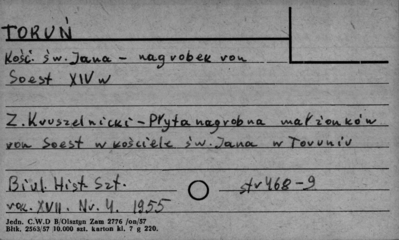 TORUŃ
Kość. św. Jana – nagrobek von
Soest XIV w
Z. Kruszelnicki – Płyta nagrobna małżonków
von Soest w kościele św. Jana w Toruniu
Biul. Hist. Szt. str 468–9
rok. XVII. Nr. 4. 1955
Jedn. C.W.D B/Olsztyn Zam 2776 /on/57
Bltk. 2563/57 10.000 szt. karton kl. 7 g 220.